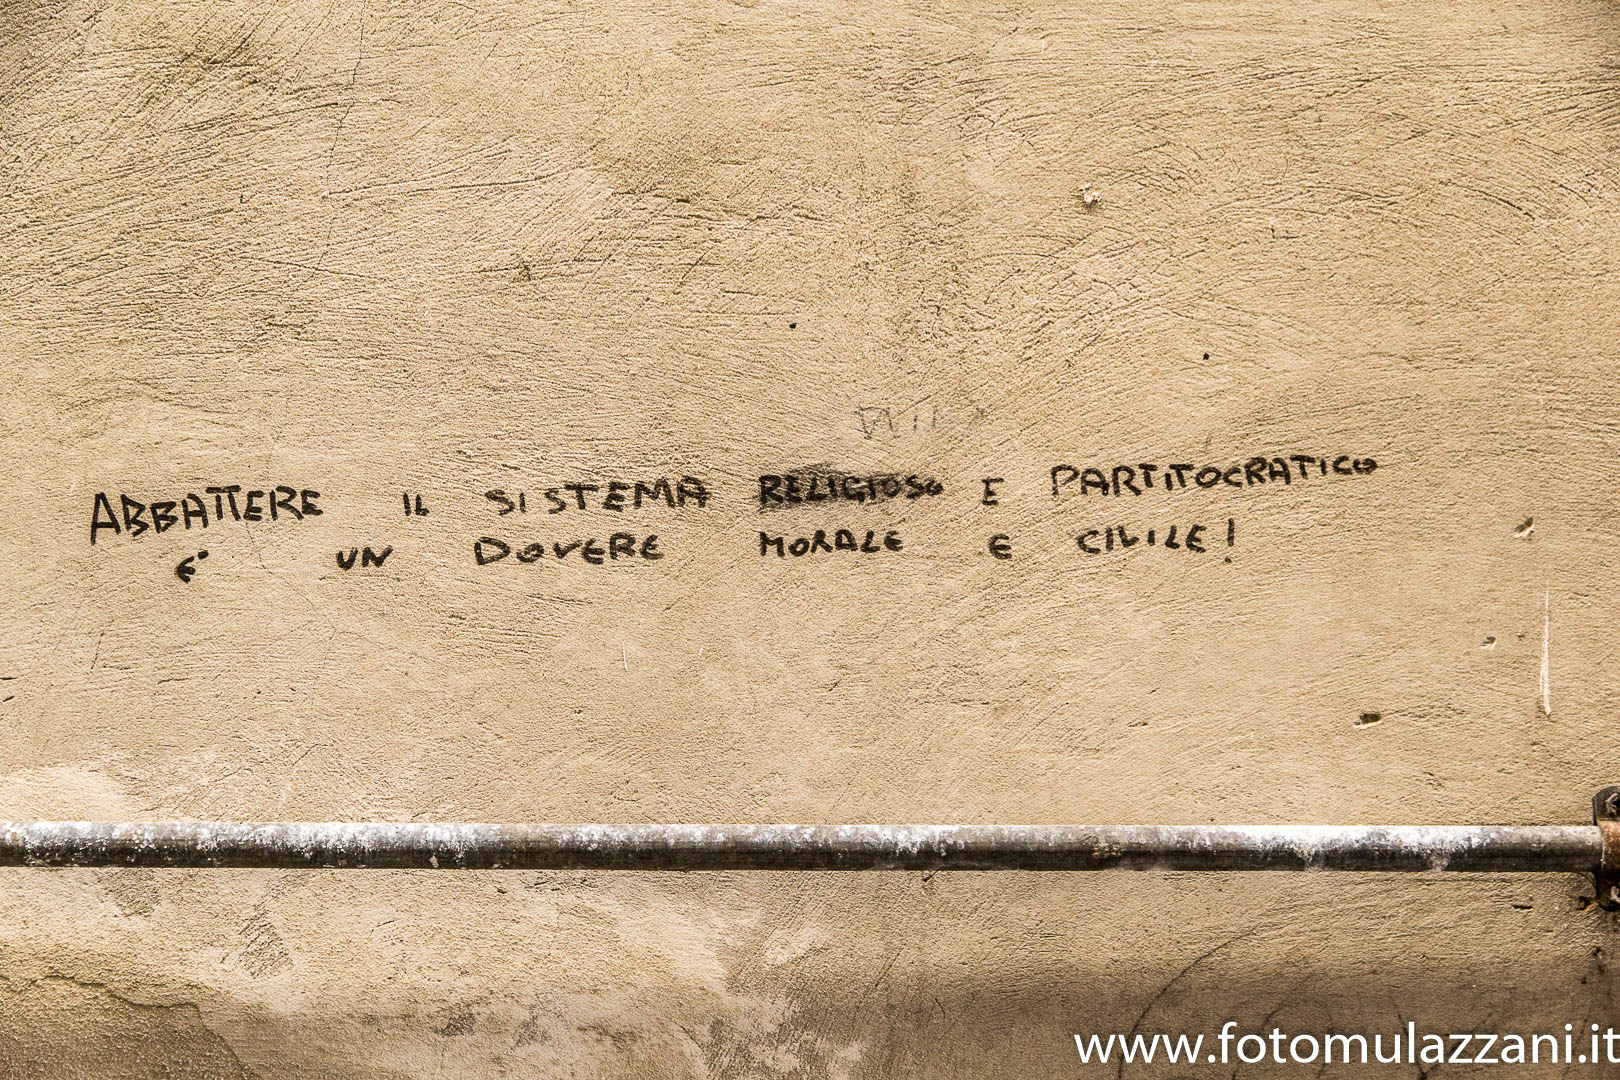 ABBATTERE IL SISTEMA RELIGIOSO E PARTITOCRATICO
E' UN DOVERE MORALE E CIVILE!
www.fotomulazzani.it